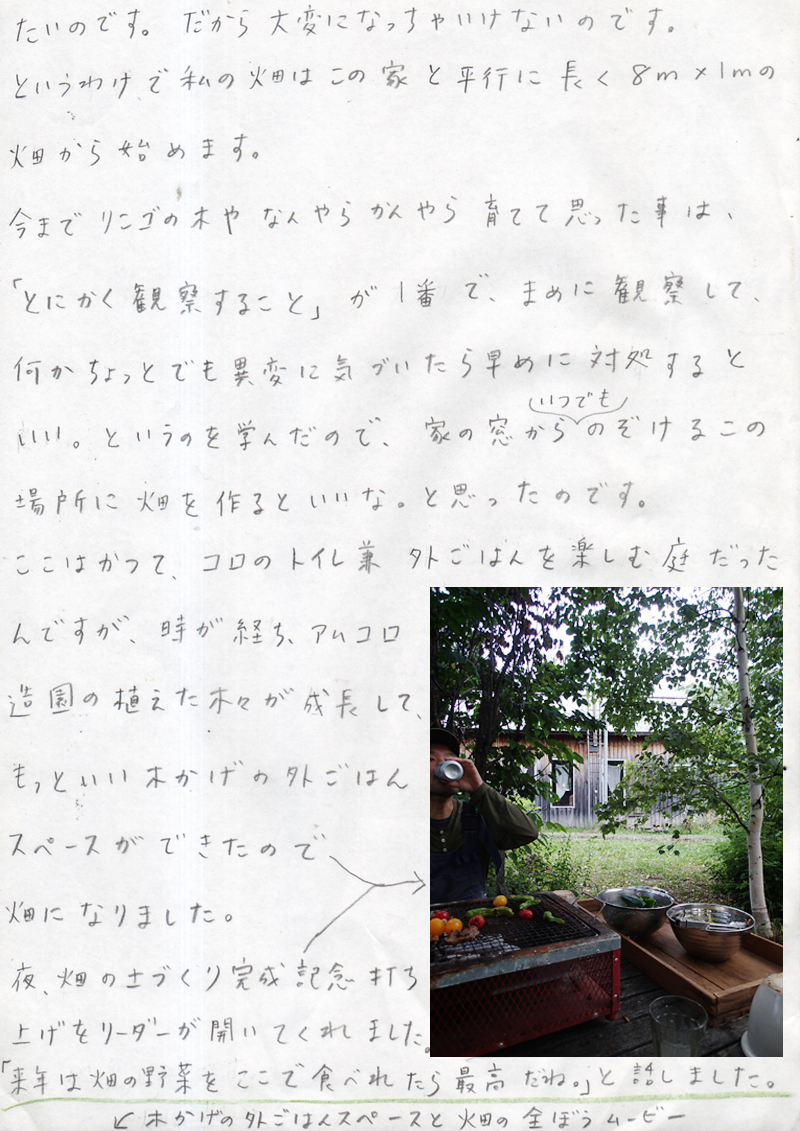 たいのです。だから大変になっちゃいけないのです。
というわけで私の畑はこの家と平行に長く8m×1mの
畑から始めます。
今までリンゴの木やなんやらかんやら育てて思った事は、
「とにかく観察すること」が1番で、まめに観察して、
何かちょっとでも異変に気づいたら早めに対処すると
いい。というのを学んだので、家の窓からいつでものぞけるこの
場所に畑を作るといいな。と思ったのです。
ここはかつて、コロのトイレ兼外ごはんを楽しむ庭だった
んですが、時が経ち、アムコロ
造園の植えた木々が成長して、
もっといい木かげの外ごはん
スペースができたので
畑になりました。
夜、畑の土づくり完成記念打ち
上げをリーダーが開いてくれました。
「来年は畑の野菜をここで食べれたら最高だね。」と話しました。
↙木かげの外ごはんスペースと畑の全ぼうムービー